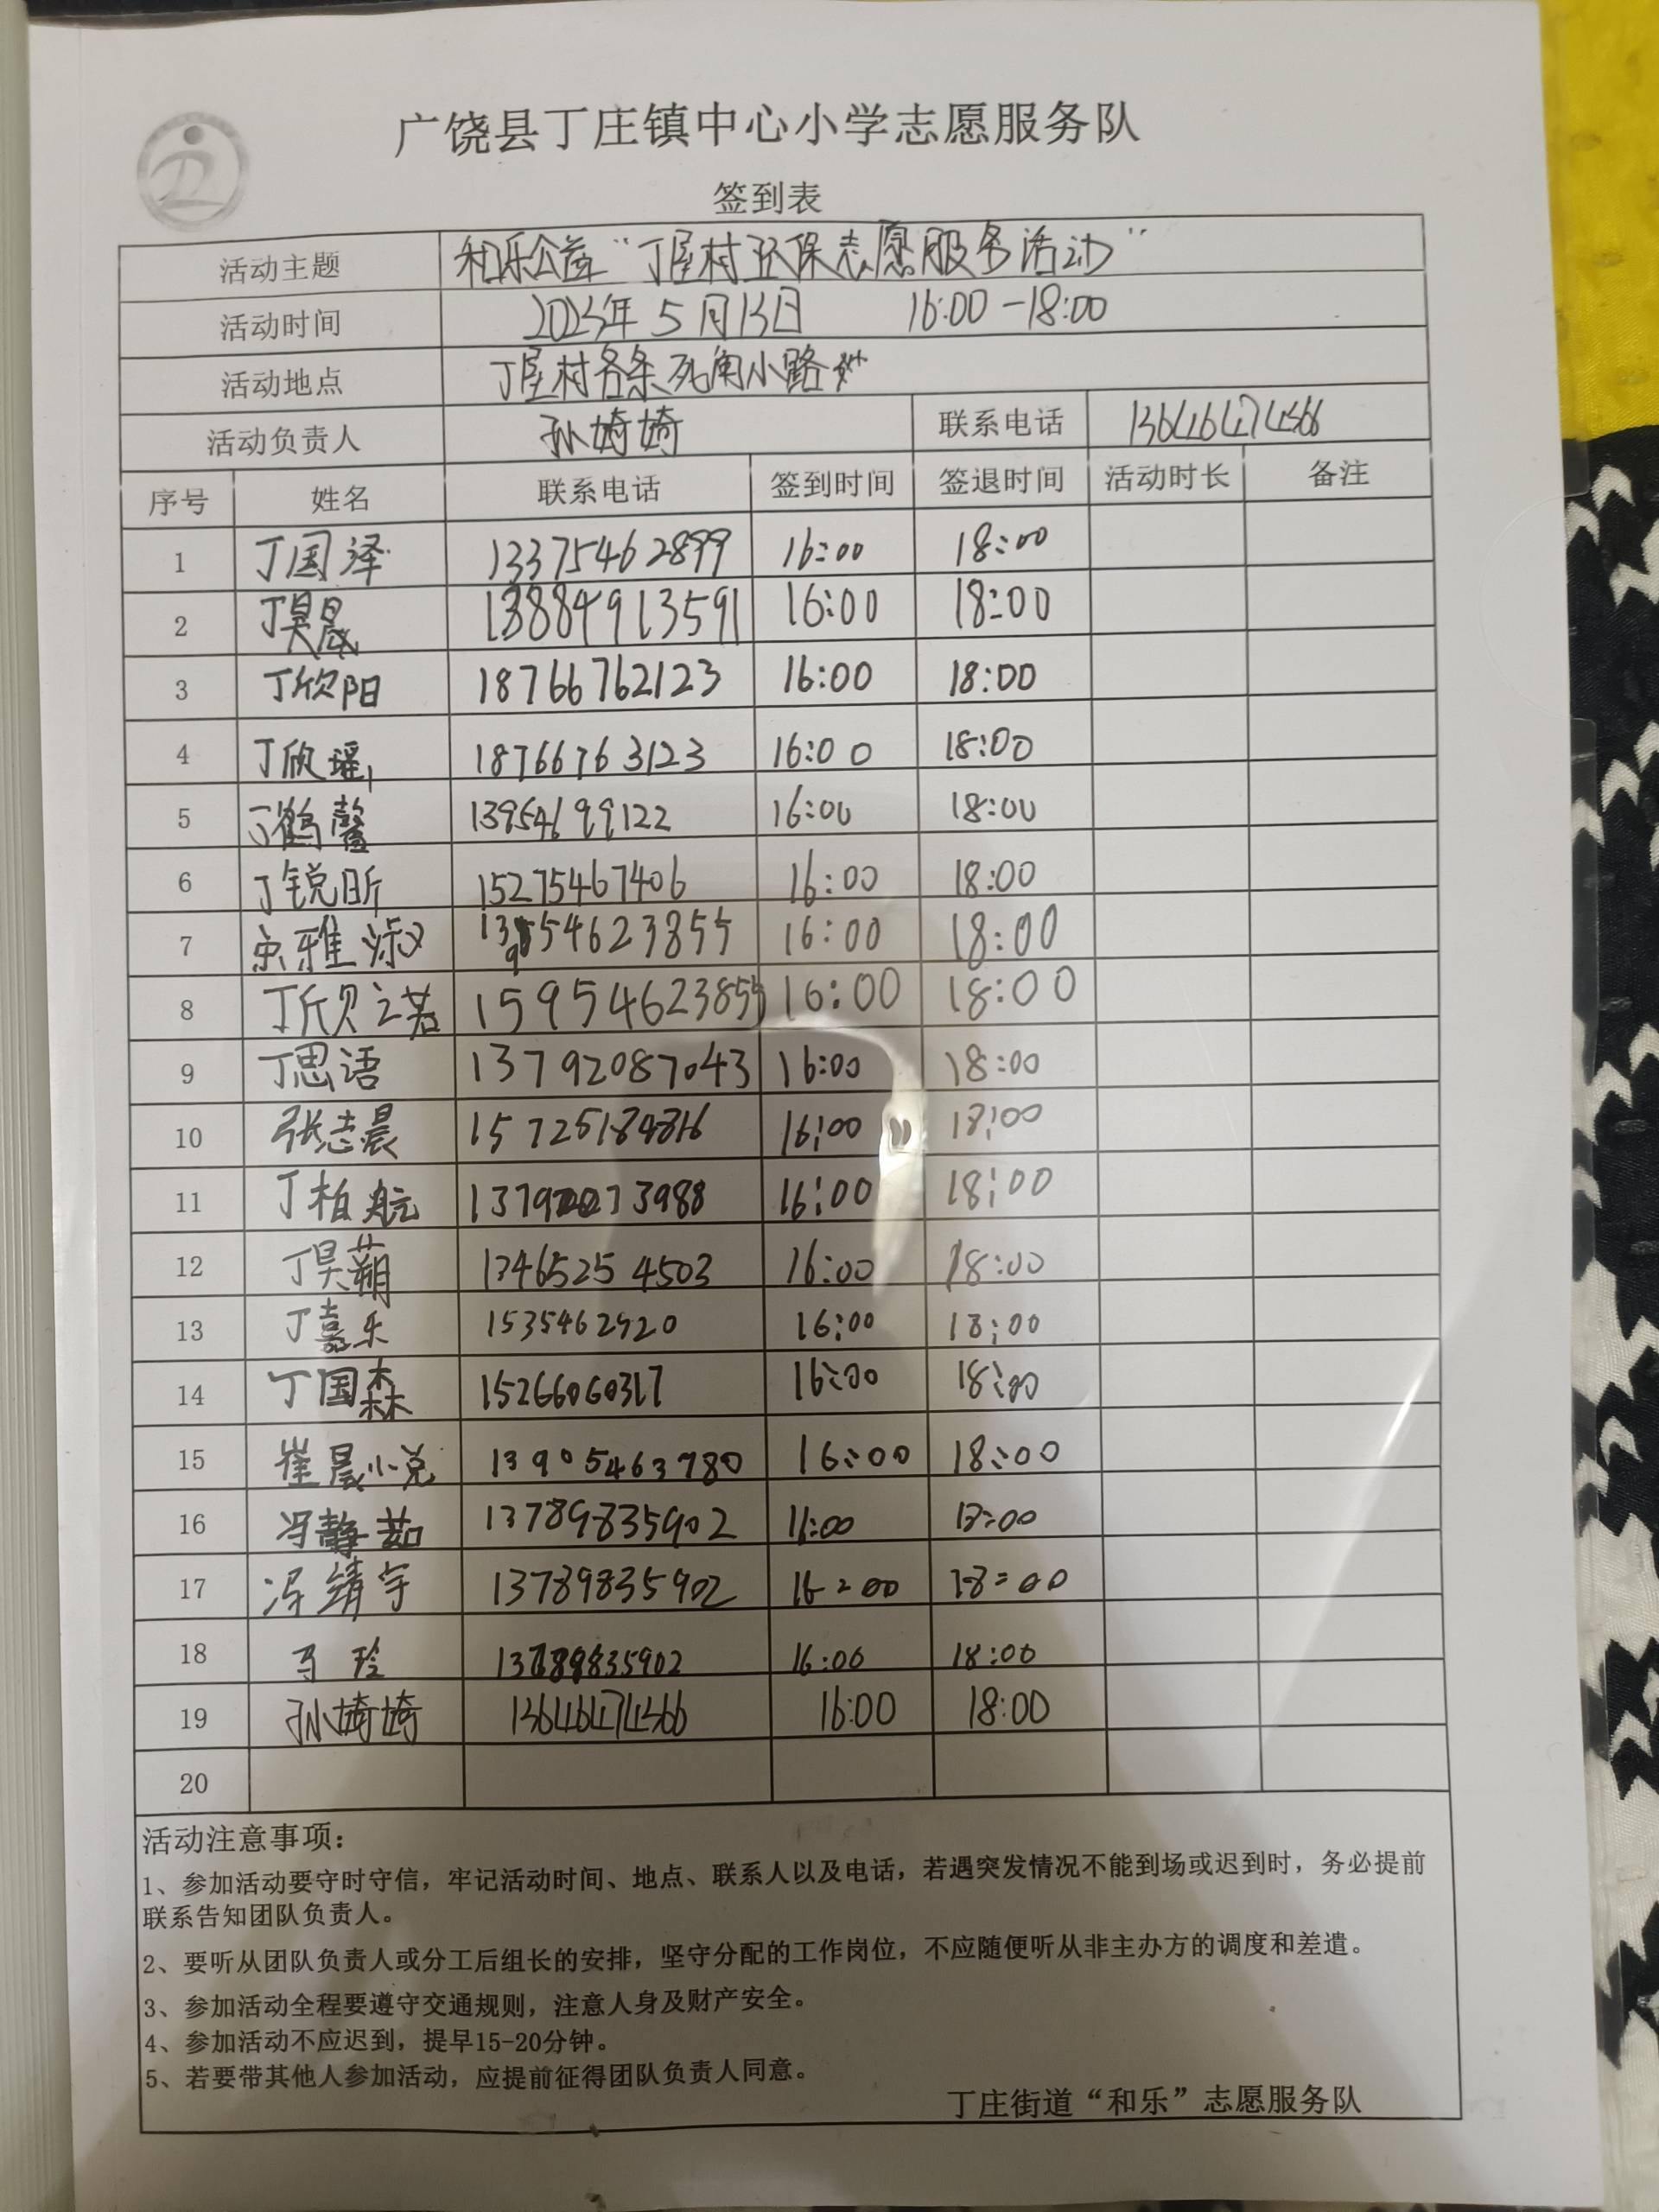 广饶县丁庄镇中心小学志愿服务队
签到表
活动主题 和乐公益“丁屋村环保志愿服务活动”
活动时间 2023年5月13日 16:00-18:00
活动地点 丁屋村各条死角小路
活动负责人 孙婍婍 联系电话 13646474366
序号 姓名 联系电话 签到时间 签退时间 活动时长 备注
1 丁国泽 13375462899 16:00 18:00
2 丁昊晟 13884913591 16:00 18:00
3 丁欣阳 18766762123 16:00 18:00
4 丁欣瑶 18766763123 16:00 18:00
5 丁鹤馨 13954699122 16:00 18:00
6 丁锐昕 15275467406 16:00 18:00
7 16:00 18:00
8 15954623855 16:00 18:00
9 丁思语 13792087043 16:00 18:00
10 张志晨 16:00 18:00
11 丁柏航 16:00 18:00
12 丁昊蒴 13465254503 16:00 18:00
13 丁嘉乐 1535462920 16:00 18:00
14 丁国森 15266060317 16:00 18:00
15 崔晨小说 13905463780 16:00 18:00
16 冯静茹 13789835902 16:00 18:00
17 冯靖宇 13789835902 16:00 18:00
18 马玲 13789835902 16:00 18:00
19 孙婍婍 13646474366 16:00 18:00
20
活动注意事项：
1、参加活动要守时守信，牢记活动时间、地点、联系人以及电话，若遇突发情况不能到场或迟到时，务必提前
联系告知团队负责人。
2、要听从团队负责人或分工后组长的安排，坚守分配的工作岗位，不应随便听从非主办方的调度和差遣。
3、参加活动全程要遵守交通规则，注意人身及财产安全。
4、参加活动不应迟到，提早15-20分钟。
5、若要带其他人参加活动，应提前征得团队负责人同意。
丁庄街道“和乐”志愿服务队